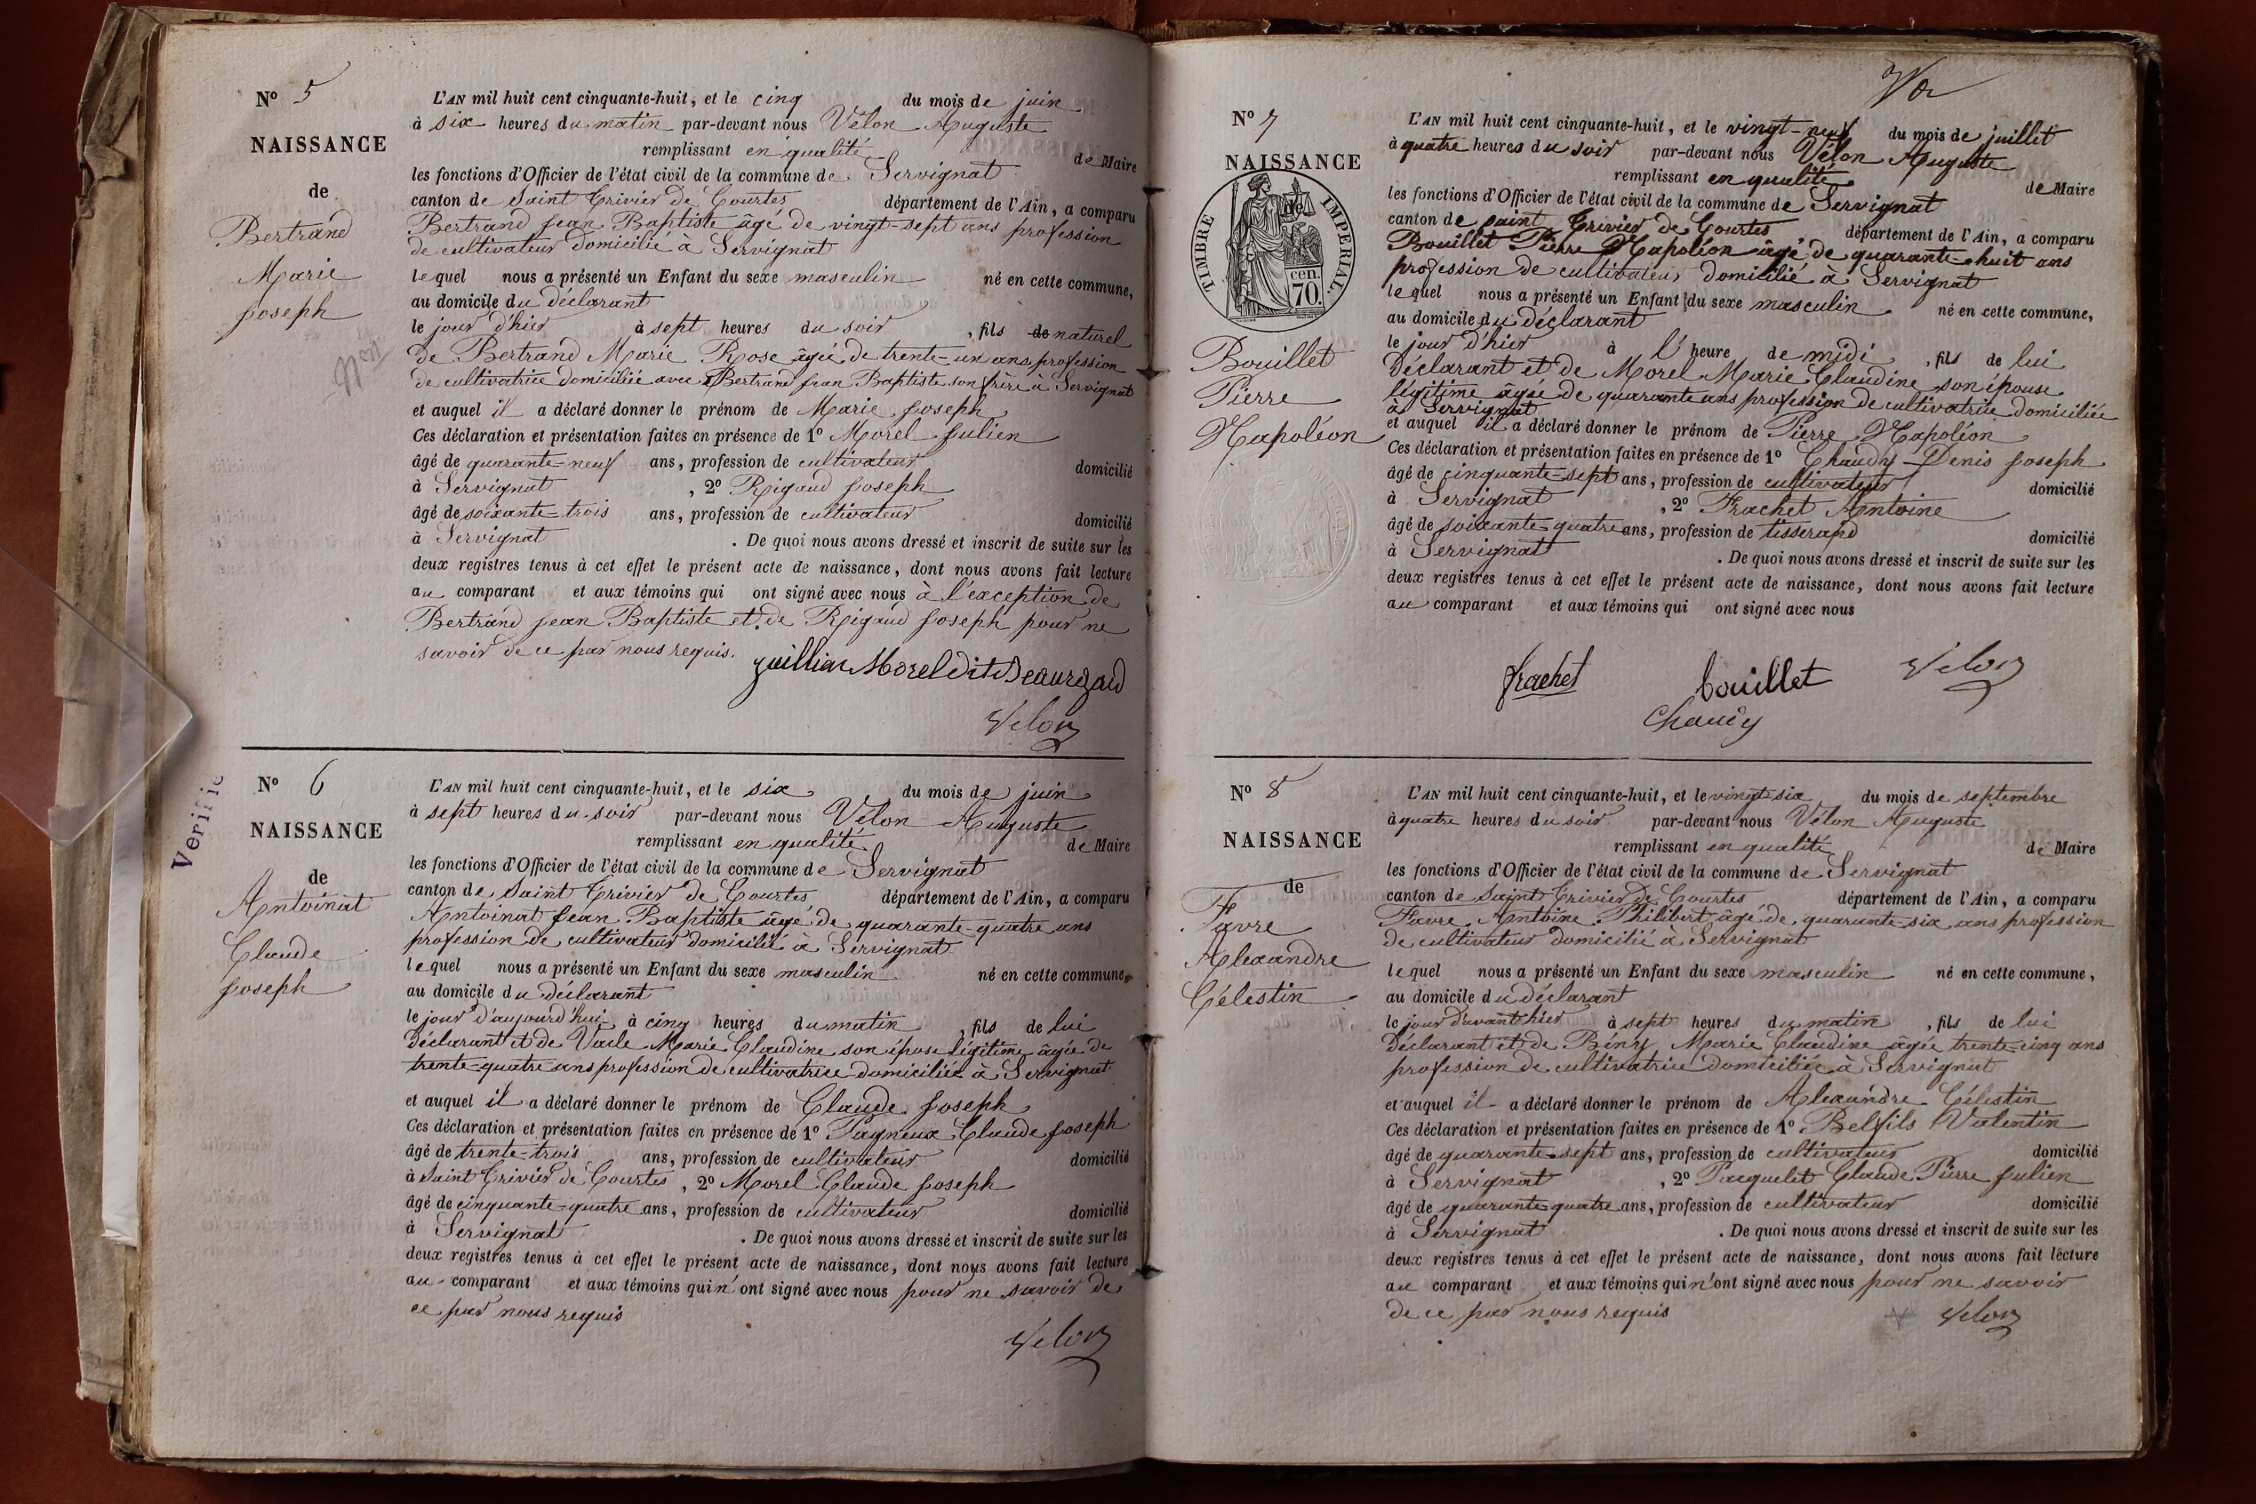 N° 5
NAISSANCE
de
Bertrand
Marie
Joseph
L'AN mil huit cent cinquante-huit, et le cinq du mois de juin
à six heures du matin par-devant nous Vélon Auguste
remplissant en qualité de Maire
les fonctions d'Officier de l'état civil de la commune de Servignat
canton de Saint Trivier de Courtes département de l'Ain, a comparu
Bertrand Jean Baptiste âgé de vingt-sept ans profession
de cultivateur domicilié à Servignat
lequel nous a présenté un Enfant du sexe masculin né en cette commune,
au domicile du déclarant
le jour d'hier à sept heures du soir, fils de naturel
de Bertrand Marie Rose âgée de trente-un ans profession
de cultivatrice domiciliée avec Bertrand Jean Baptiste son frère à Servignat
et auquel il a déclaré donner le prénom de Marie Joseph
Ces déclaration et présentation faites en présence de 1° Morel Julien
âgé de quarante-neuf ans, profession de cultivateur domicilié
à Servignat, 2° Rigaud Joseph
âgé de soixante-trois ans, profession de cultivateur domicilié
à Servignat. De quoi nous avons dressé et inscrit de suite sur les
deux registres tenus à cet effet le présent acte de naissance, dont nous avons fait lecture
au comparant et aux témoins qui ont signé avec nous à l'exception de
Bertrand Jean Baptiste et de Rigaud Joseph pour ne
savoir de ce par nous requis.
Morel dit
Velon
Verifié
N° 6
NAISSANCE
de
Antoinat
Claude
Joseph
L'AN mil huit cent cinquante-huit, et le six du mois de juin
à sept heures du soir par-devant nous Vélon Auguste
remplissant en qualité de Maire
les fonctions d'Officier de l'état civil de la commune de Servignat
canton de Saint Trivier de Courtes département de l'Ain, a comparu
Antoinat Jean Baptiste âgé de quarante-quatre ans
profession de cultivateur domicilié à Servignat
lequel nous a présenté un Enfant du sexe masculin né en cette commune
au domicile du déclarant
le jour d'aujourd'hui à cinq heures du matin, fils de lui
déclarant et de Marie Claudine son épouse légitime âgée de
trente-quatre ans profession de cultivatrice domiciliée à Servignat
et auquel il a déclaré donner le prénom de Claude Joseph
Ces déclaration et présentation faites en présence de 1° Pagneux Claude Joseph
âgé de trente-trois ans, profession de cultivateur domicilié
à Saint Trivier de Courtes, 2° Morel Claude Joseph
âgé de cinquante-quatre ans, profession de cultivateur domicilié
à Servignat. De quoi nous avons dressé et inscrit de suite sur les
deux registres tenus à cet effet le présent acte de naissance, dont nous avons fait lecture
au comparant et aux témoins qui n'ont signé avec nous pour ne savoir de
ce par nous requis
Velon
N° 7
NAISSANCE
de
TIMBRE IMPERIAL
70 cen.
Bouillet
Pierre
Napoléon
L'AN mil huit cent cinquante-huit, et le vingt-neuf du mois de juillet
à quatre heures du soir par-devant nous Vélon Auguste
remplissant en qualité de Maire
les fonctions d'Officier de l'état civil de la commune de Servignat
canton de saint Trivier de Courtes département de l'Ain, a comparu
Bouillet Pierre Napoléon âgé de quarante-huit ans
profession de cultivateur domicilié à Servignat
lequel nous a présenté un Enfant du sexe masculin né en cette commune,
au domicile du déclarant
le jour d'hier à l'heure de midi, fils de lui
déclarant et de Morel Marie Claudine son épouse
légitime âgée de quarante ans profession de cultivatrice domiciliée
à Servignat
et auquel il a déclaré donner le prénom de Pierre Napoléon
Ces déclaration et présentation faites en présence de 1° Chaudy Denis Joseph
âgé de cinquante-sept ans, profession de cultivateur domicilié
à Servignat, 2° Frachet Antoine
âgé de soixante-quatre ans, profession de tisserand domicilié
à Servignat. De quoi nous avons dressé et inscrit de suite sur les
deux registres tenus à cet effet le présent acte de naissance, dont nous avons fait lecture
au comparant et aux témoins qui ont signé avec nous
frachet bouillet Velon
Chaudy
N° 8
NAISSANCE
de
Favre
Alexandre
Célestin
L'AN mil huit cent cinquante-huit, et le vingt six du mois de septembre
à quatre heures du soir par-devant nous Vélon Auguste
remplissant en qualité de Maire
les fonctions d'Officier de l'état civil de la commune de Servignat
canton de Saint Trivier de Courtes département de l'Ain, a comparu
Favre Antoine Philibert âgé de quarante-six ans profession
de cultivateur domicilié à Servignat
lequel nous a présenté un Enfant du sexe masculin né en cette commune,
au domicile du déclarant
le jour d'avant hier à sept heures du matin, fils de lui
déclarant et de Marie Claudine âgée trente-cinq ans
profession de cultivatrice domiciliée à Servignat
et auquel il a déclaré donner le prénom de Alexandre Célestin
Ces déclaration et présentation faites en présence de 1° Belfils Valentin
âgé de quarante-sept ans, profession de cultivateur domicilié
à Servignat, 2° Pacquelet Claude Pierre Julien
âgé de quarante quatre ans, profession de cultivateur domicilié
à Servignat. De quoi nous avons dressé et inscrit de suite sur les
deux registres tenus à cet effet le présent acte de naissance, dont nous avons fait lecture
au comparant et aux témoins qui n'ont signé avec nous pour ne savoir
de ce par nous requis Velon